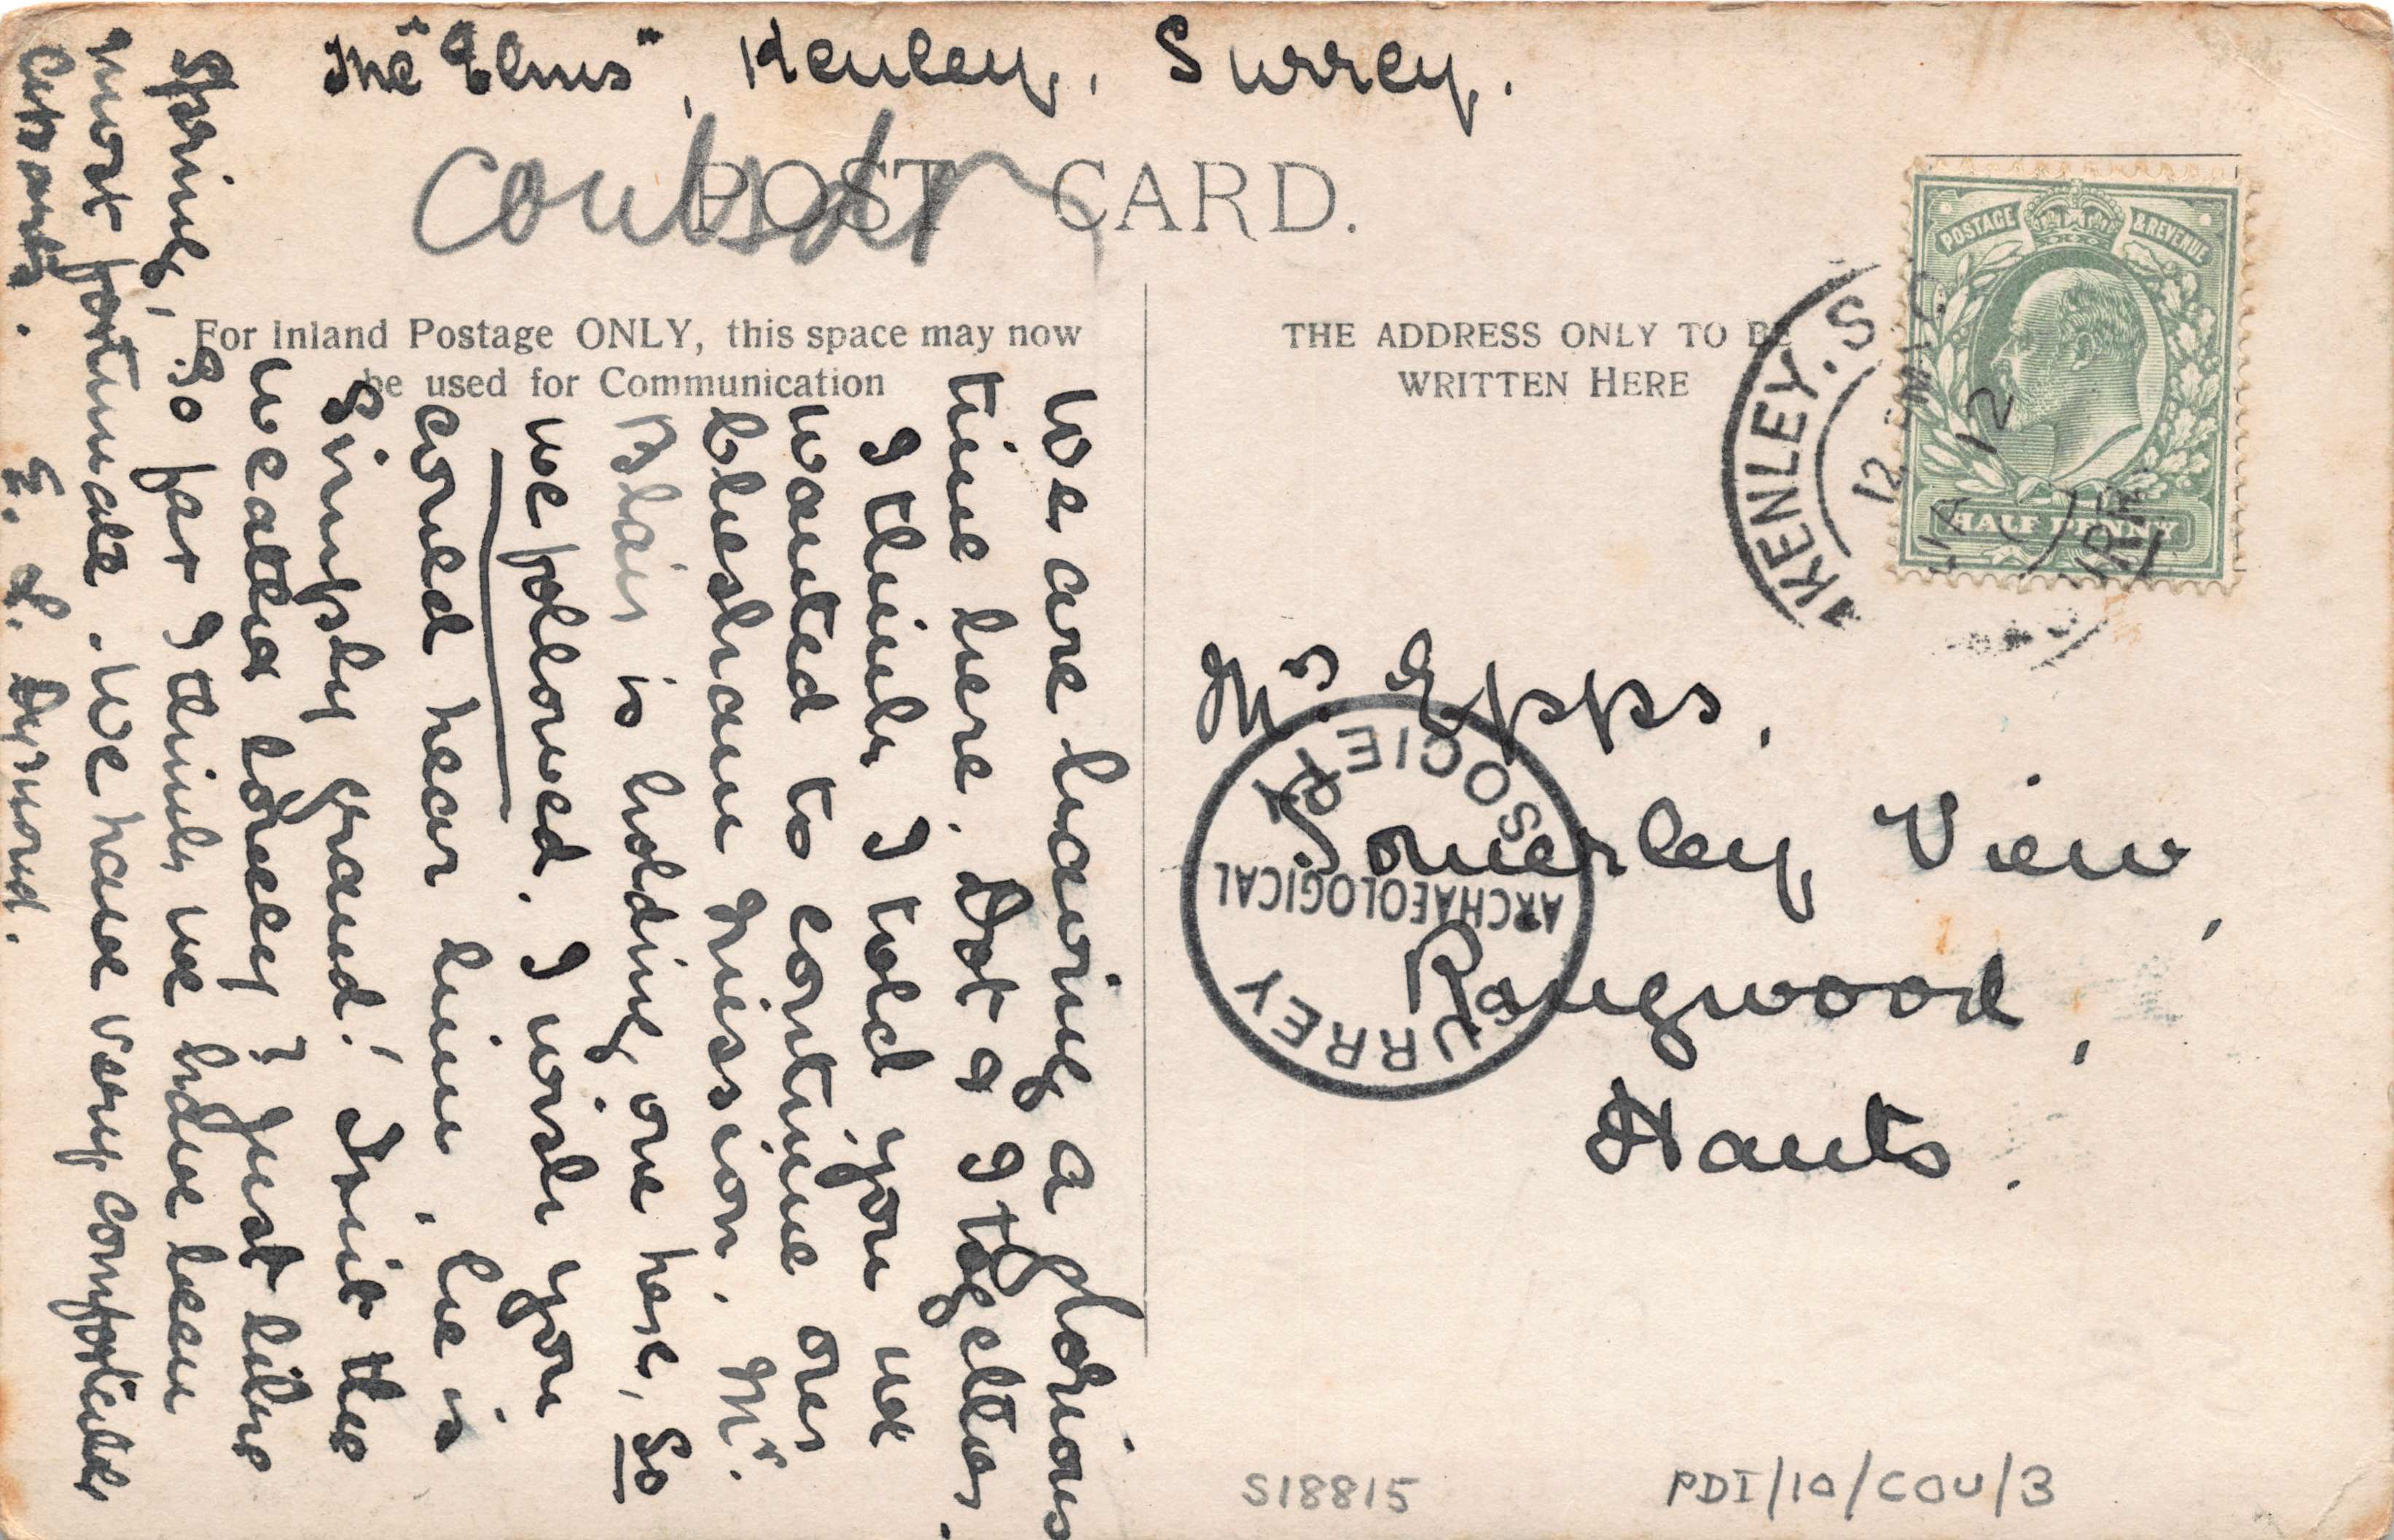 The "Elms", Kenley, Surrey.
Coulsdon
POST CARD.
For Inland Postage ONLY, this space may now
be used for Communication
THE ADDRESS ONLY TO BE
WRITTEN HERE
POSTAGE & REVENUE
HALF PENNY
KENLEY. S
12
JA 12
We are having a glorious
time here. Dot & I together.
I think I told you we
wanted to continue our
blesham mission. Mr.
Blair is holding one here, so
we followed. I wish you
could hear him, he is
simply grand! Isn't the
weather lovely? Just like
Spring, so far I think we have been
most fortunate. We have very comfortable
E. L. Dymond.
Mrs. Epps,
Somerley View,
Ringwood,
Hants.
SURREY
ARCHAEOLOGICAL
SOCIETY
S18815
PDI/10/COU/3